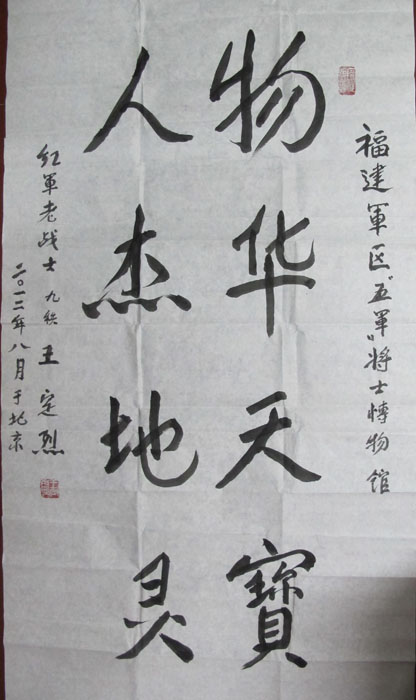 福建軍区“五軍”将士博物館
物华天寶
人杰地灵
红軍老战士 九秩 王定烈
二〇一三年八月于北京